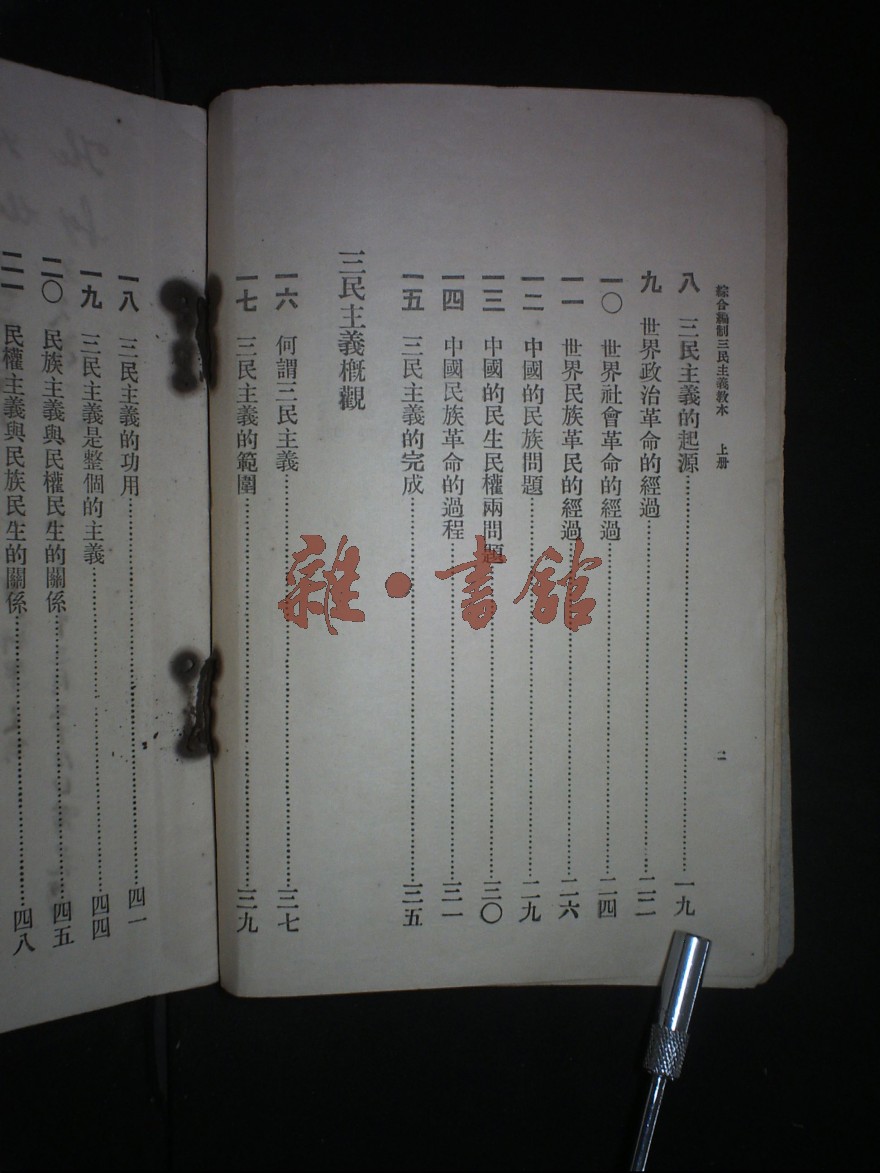 綜合編制三民主義教本 上册 二
八 三民主義的起源……一九
九 世界政治革命的經過……二二
一〇 世界社會革命的經過……二四
一一 世界民族革民的經過……二六
一二 中國的民族問題……二九
一三 中國的民生民權兩問題……三〇
一四 中國民族革命的過程……三一
一五 三民主義的完成……三五
三民主義概觀
一六 何謂三民主義……三七
一七 三民主義的範圍……三九
一八 三民主義的功用……四一
一九 三民主義是整個的主義……四四
二〇 民族主義與民權民生的關係……四五
二一 民權主義與民族民生的關係……四八
雜·書館